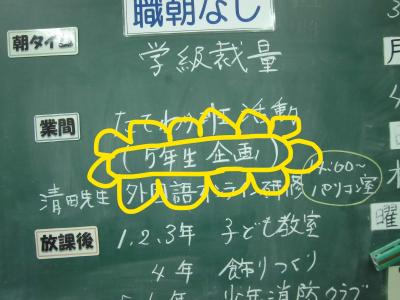 職朝なし
朝タイム
学級裁量
業間
たてわり 活動
(5年生 企画)
清田先生 外国語オンライン研修
14:00~
パソコン室
放課後
1,2,3年 子ども教室
4年 飾りつくり
少年消防クラブ
月
曜